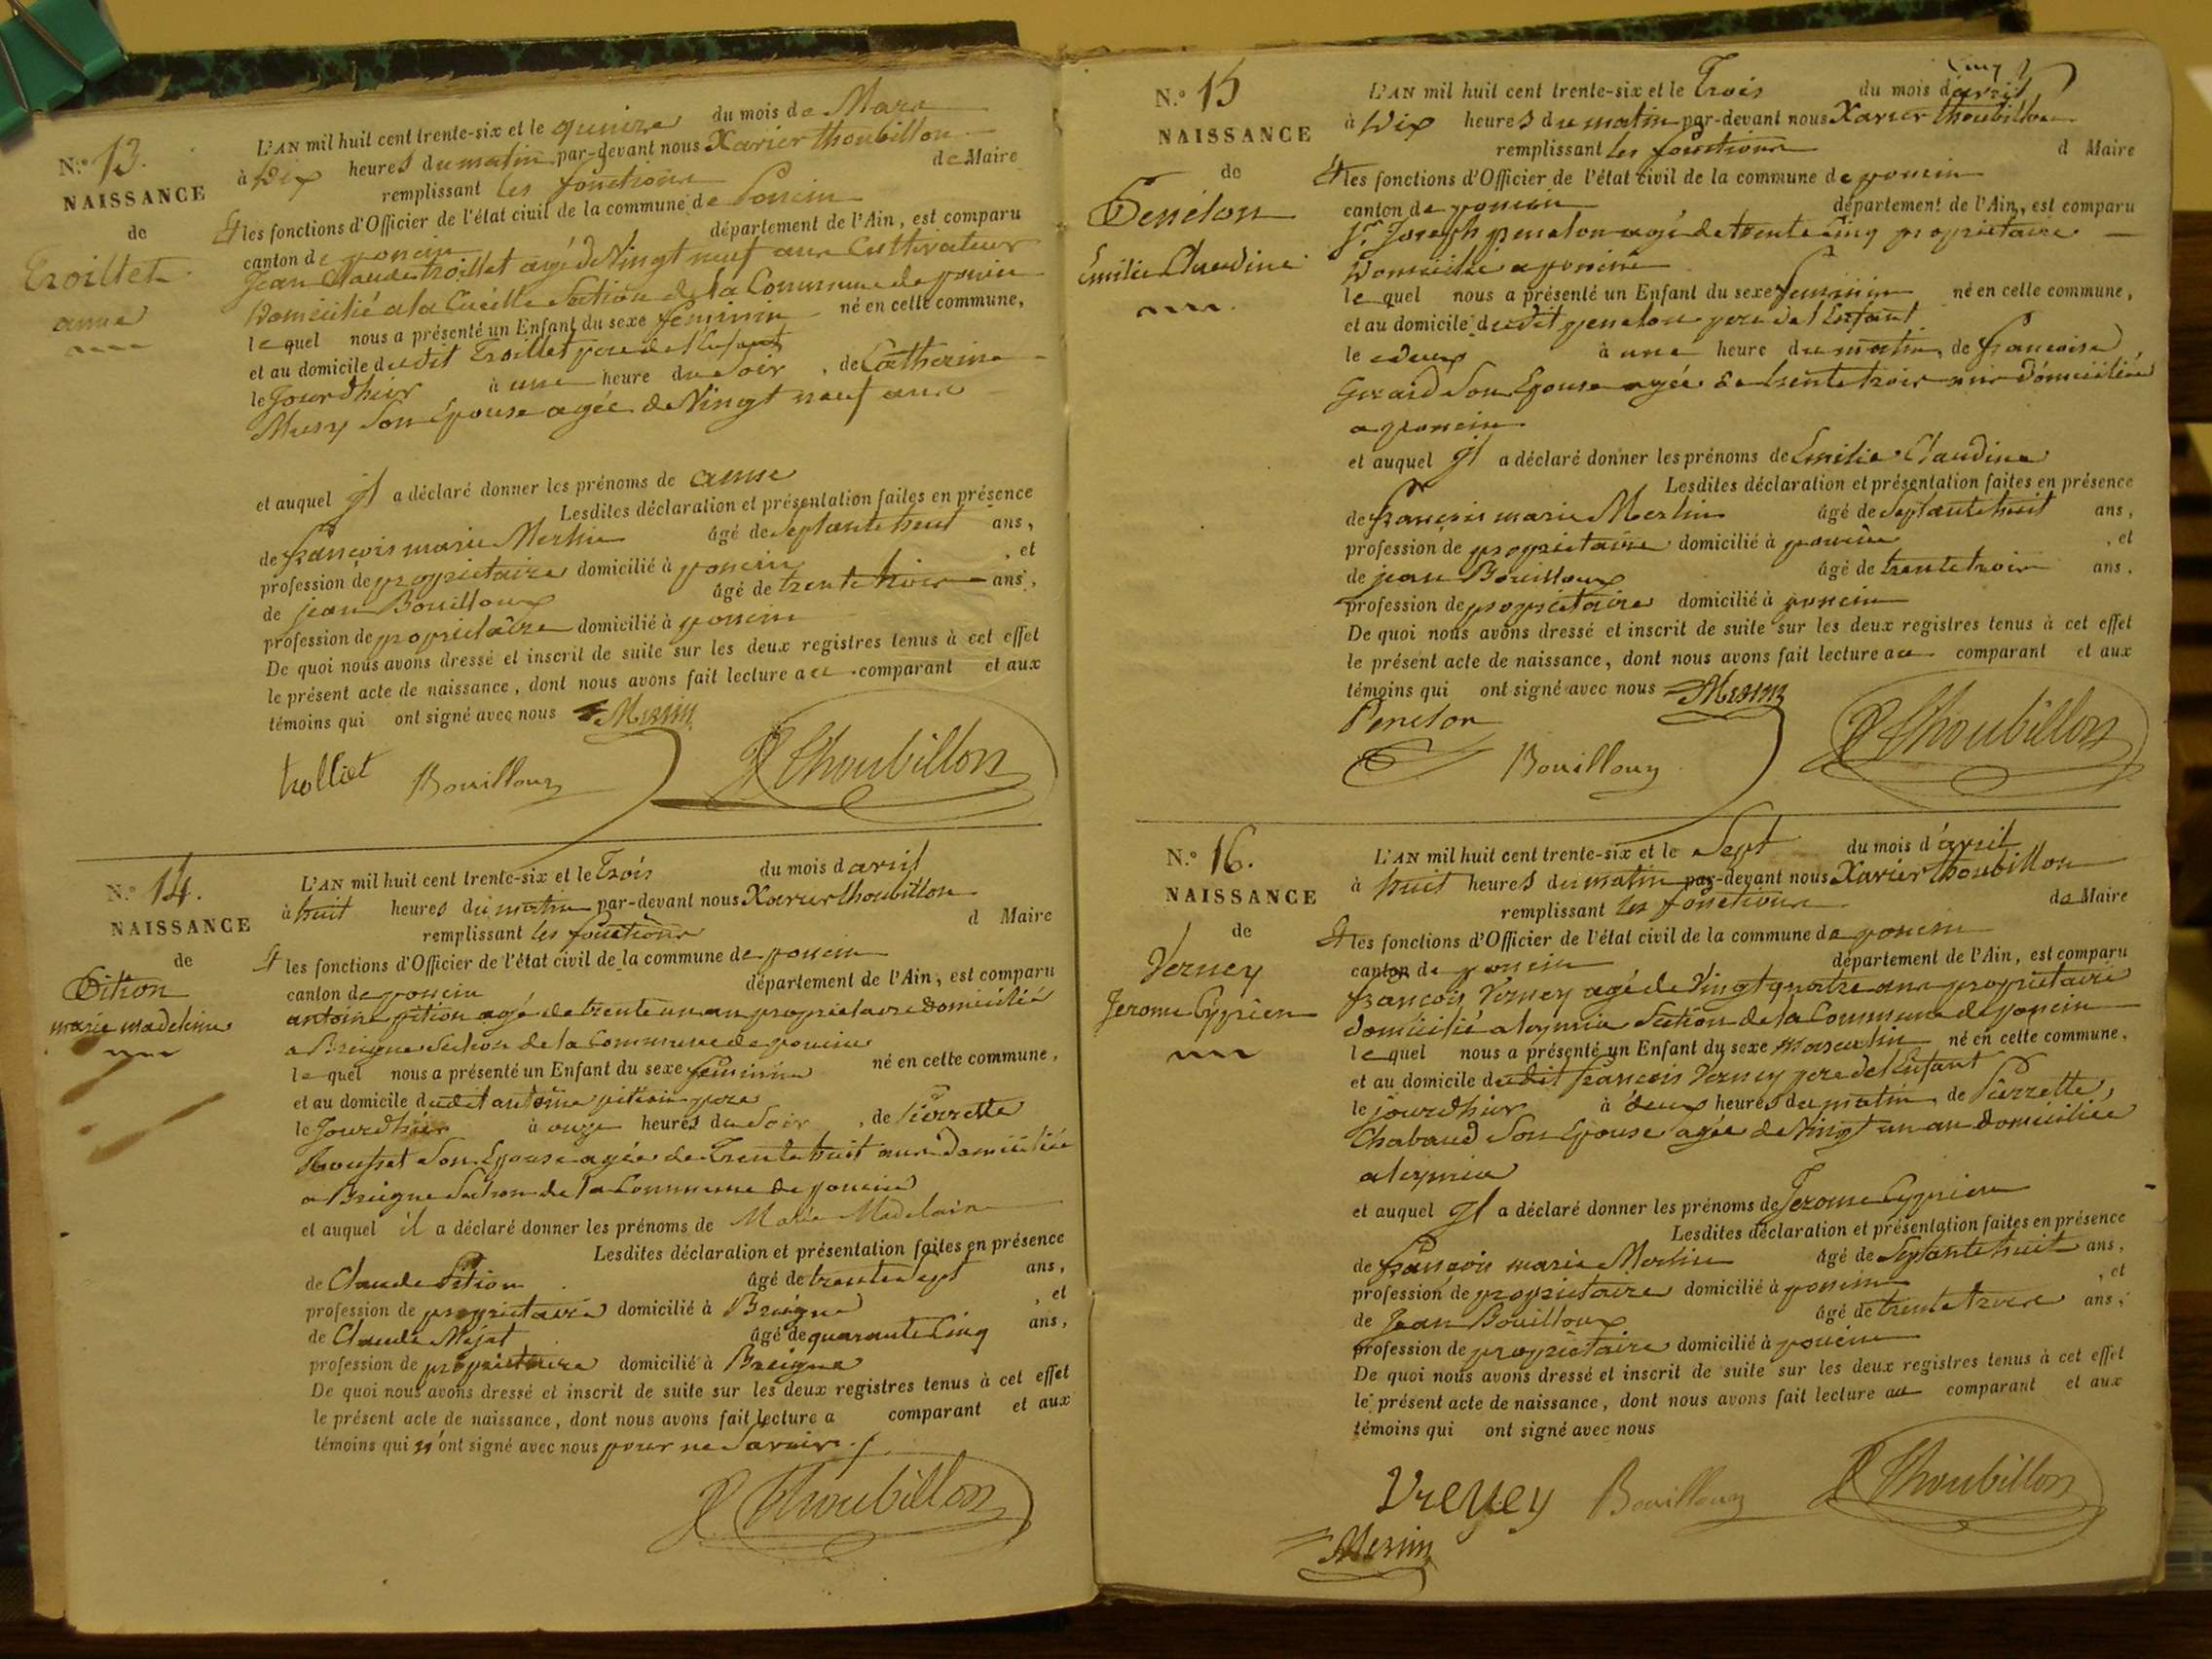 N.° 13.
NAISSANCE
de
Troillet
anne
L'AN mil huit cent trente-six et le quinze du mois de Mars
à Dix heures du matin par-devant nous Xavier Thoubillon
remplissant les fonctions de Maire
et les fonctions d'Officier de l'état civil de la commune de Poncin
canton de poncin département de l'Ain, est comparu
Jean Claude troillet agé de Vingt neuf ans Cultivateur
Domicilié a la Cueille Section de la Commune de poncin
lequel nous a présenté un Enfant du sexe féminin né en cette commune,
et au domicile dudit Troillet pere de l'enfant
le Jourdhier à une heure du Soir, de Catherine
Musy Son Epouse agée de Vingt neuf ans
et auquel il a déclaré donner les prénoms de anne
Lesdites déclaration et présentation faites en présence
de françois marie Merlin âgé de septante huit ans,
profession de proprietaire domicilié à poncin, et
de jean Bouilloux âgé de trente trois ans,
profession de proprietaire domicilié à poncin
De quoi nous avons dressé et inscrit de suite sur les deux registres tenus à cet effet
le présent acte de naissance, dont nous avons fait lecture au comparant et aux
témoins qui ont signé avec nous Merlin
trolliet Bouilloux X Thoubillon
N.° 14.
NAISSANCE
de
Pition
marie madeleine
L'AN mil huit cent trente-six et le Trois du mois d'avril
à huit heures du matin par-devant nous Xavier Thoubillon
remplissant les fonctions d Maire
et les fonctions d'Officier de l'état civil de la commune de poncin
canton de poncin département de l'Ain, est comparu
antoine pition agé de trente un an proprietaire domicilié
a Breigne Section de la Commune de poncin
lequel nous a présenté un Enfant du sexe féminin né en cette commune,
et au domicile dudit antoine pition pere
le Jourdhier à onze heures du Soir, de Pierrette
Rousset Son Epouse agée de Trente huit ans Domiciliée
a Breigne Section de la Commune de poncin
et auquel il a déclaré donner les prénoms de Marie Madelaine
Lesdites déclaration et présentation faites en présence
de Claude Pition âgé de trente sept ans,
profession de proprietaire domicilié à Breigne, et
de Claude Mejat âgé de quarante Cinq ans,
profession de proprietaire domicilié à Breigne
De quoi nous avons dressé et inscrit de suite sur les deux registres tenus à cet effet
le présent acte de naissance, dont nous avons fait lecture a comparant et aux
témoins qui n'ont signé avec nous pour ne Savoir.
X Thoubillon
Cinq
N.° 15
NAISSANCE
de
Penelon
Emilie Claudine
L'AN mil huit cent trente-six et le Trois du mois d'avril
à Dix heures du matin par-devant nous Xavier Thoubillon
remplissant les fonctions d Maire
et les fonctions d'Officier de l'état civil de la commune de poncin
canton de poncin département de l'Ain, est comparu
Sr. Joseph penelon agé de trente Cinq proprietaire
Domicilié a poncin
lequel nous a présenté un Enfant du sexe feminin né en cette commune,
et au domicile dudit penelon pere de l'Enfant
le deux à une heure du matin, de francoise
Gerard Son Epouse agée de trente trois ans domiciliée
a poncin
et auquel il a déclaré donner les prénoms de Emilie Claudine
Lesdites déclaration et présentation faites en présence
de françois marie Merlin âgé de Septante huit ans,
profession de proprietaire domicilié à poncin, et
de jean Bouilloux âgé de trente trois ans,
profession de proprietaire domicilié à poncin
De quoi nous avons dressé et inscrit de suite sur les deux registres tenus à cet effet
le présent acte de naissance, dont nous avons fait lecture au comparant et aux
témoins qui ont signé avec nous Merlin
Penelon Bouilloux X Thoubillon
N.° 16.
NAISSANCE
de
Verney
Jerome Cyprien
L'AN mil huit cent trente-six et le Sept du mois d'avril
à huit heures du matin par-devant nous Xavier Thoubillon
remplissant les fonctions de Maire
et les fonctions d'Officier de l'état civil de la commune de poncin
canton de poncin département de l'Ain, est comparu
françois Verney agé de Vingt quatre ans proprietaire
domicilié a leymia Section de la Commune de poncin
lequel nous a présenté un Enfant du sexe masculin né en cette commune,
et au domicile dudit françois Verney pere de l'Enfant
le jourdhier à deux heures du matin, de Pierrette
Chabaud Son Epouse agée de Vingt un an domiciliée
a leymia
et auquel il a déclaré donner les prénoms de Jerome Cyprien
Lesdites déclaration et présentation faites en présence
de françois marie Merlin âgé de Septante huit ans,
profession de proprietaire domicilié à poncin, et
de Jean Bouilloux âgé de trente trois ans,
profession de proprietaire domicilié à poncin
De quoi nous avons dressé et inscrit de suite sur les deux registres tenus à cet effet
le présent acte de naissance, dont nous avons fait lecture au comparant et aux
témoins qui ont signé avec nous
Vreney Bouilloux X Thoubillon
Merlin